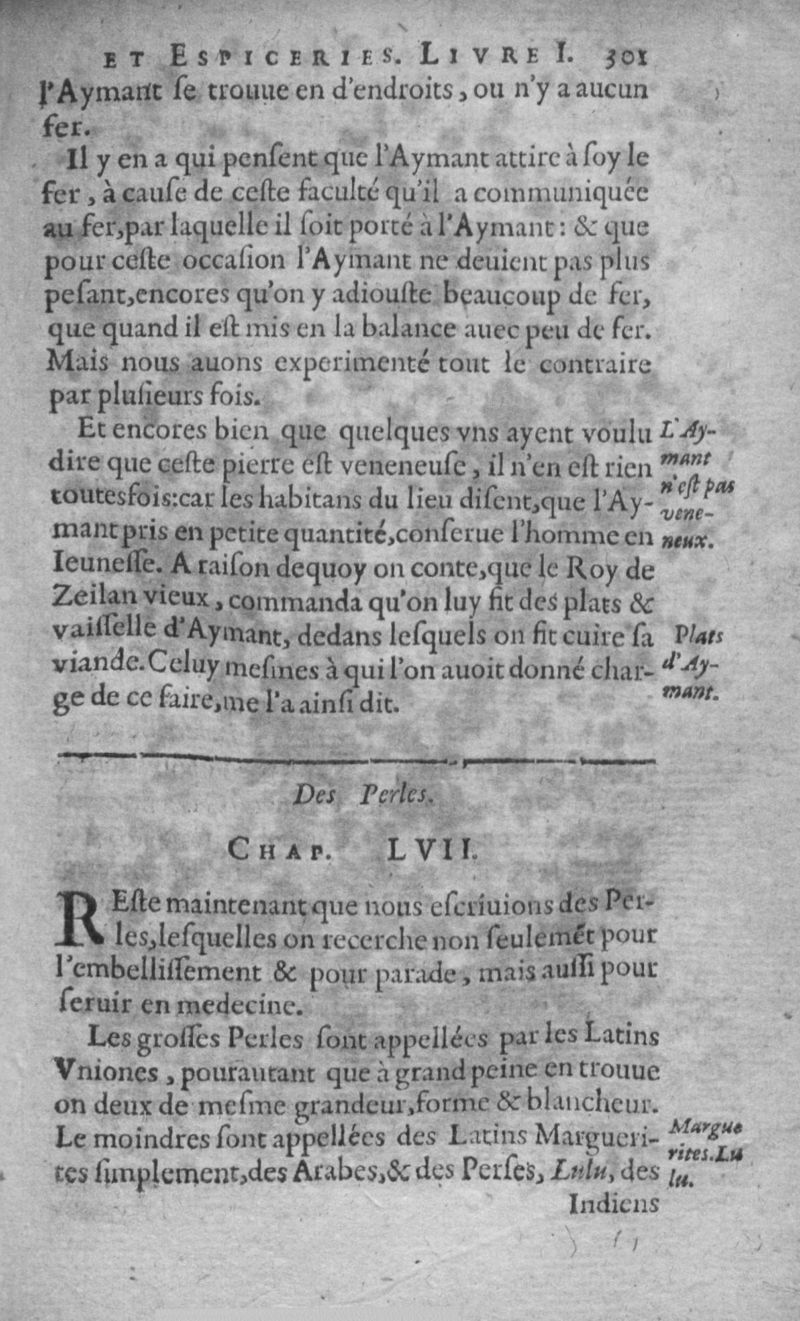 ET ESPICERIES. LIVRE I. 301
l'Aymant ſe trouue en d'endroits, ou n'y a aucun
fer.
Il y en a qui penſent que l'Aymant attire à ſoy le
fer, à cauſe de ceſte faculté qu'il a communiquée
au fer, par laquelle il ſoit porté à l'Aymant: & que
pour ceſte occaſion l'Aymant ne deuient pas plus
peſant, encores qu'on y adiouſte beaucoup de fer,
que quand il eſt mis en la balance auec peu de fer.
Mais nous auons experimenté tout le contraire
par pluſieurs fois.
Et encores bien que quelques vns ayent voulu
dire que ceſte pierre eſt veneneuſe, il n'en eſt rien
toutesfois: car les habitans du lieu diſent, que l'Ay-
mant pris en petite quantité, conſerue l'homme en
Ieuneſſe. A raiſon dequoy on conte, que le Roy de
Zeilan vieux, commanda qu'on luy fit des plats &
vaiſſelle d'Aymant, dedans leſquels on fit cuire ſa
viande. Celuy meſmes à qui l'on auoit donné char-
ge de ce faire, me l'a ainſi dit.
L'Ay-
mant
n'eſt pas
vene-
neux.
Plats
d'Ay-
mant.
Des Perles.
CHAP. LVII.
REſte maintenant que nous eſcriuions des Per-
les, leſquelles on recerche non ſeulemẽt pour
l'embelliſſement & pour parade, mais auſſi pour
ſeruir en medecine.
Les groſſes Perles ſont appellées par les Latins
Vniones, pourautant que à grand peine en trouue
on deux de meſme grandeur, forme & blancheur.
Le moindres ſont appellées des Latins Margueri-
tes ſimplement, des Arabes, & des Perſes, Lulu, des
Margue
rites. Lu
lu.
Indiens